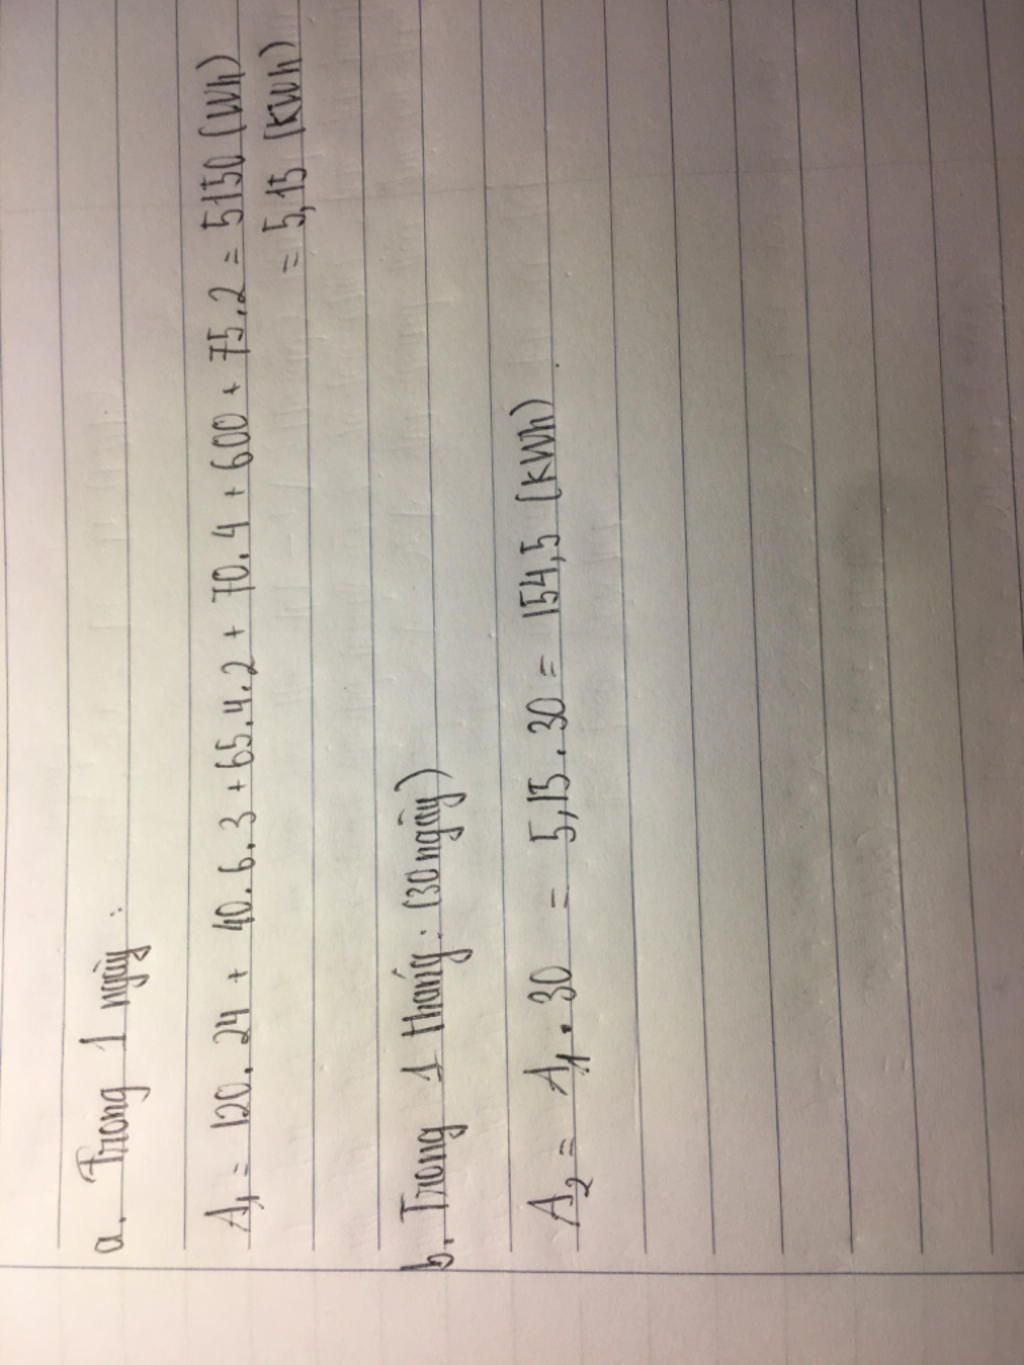 a. Trong 1 ngày :
A1 = 120. 24 + 40. 6. 3 + 65. 4. 2 + 70. 4 + 600 + 75. 2 = 5150 (Wh)
= 5,15 (KWh)
b. Trong 1 tháng: (30 ngày)
A2 = A1 . 30 = 5,15 . 30 = 154,5 (KWh)